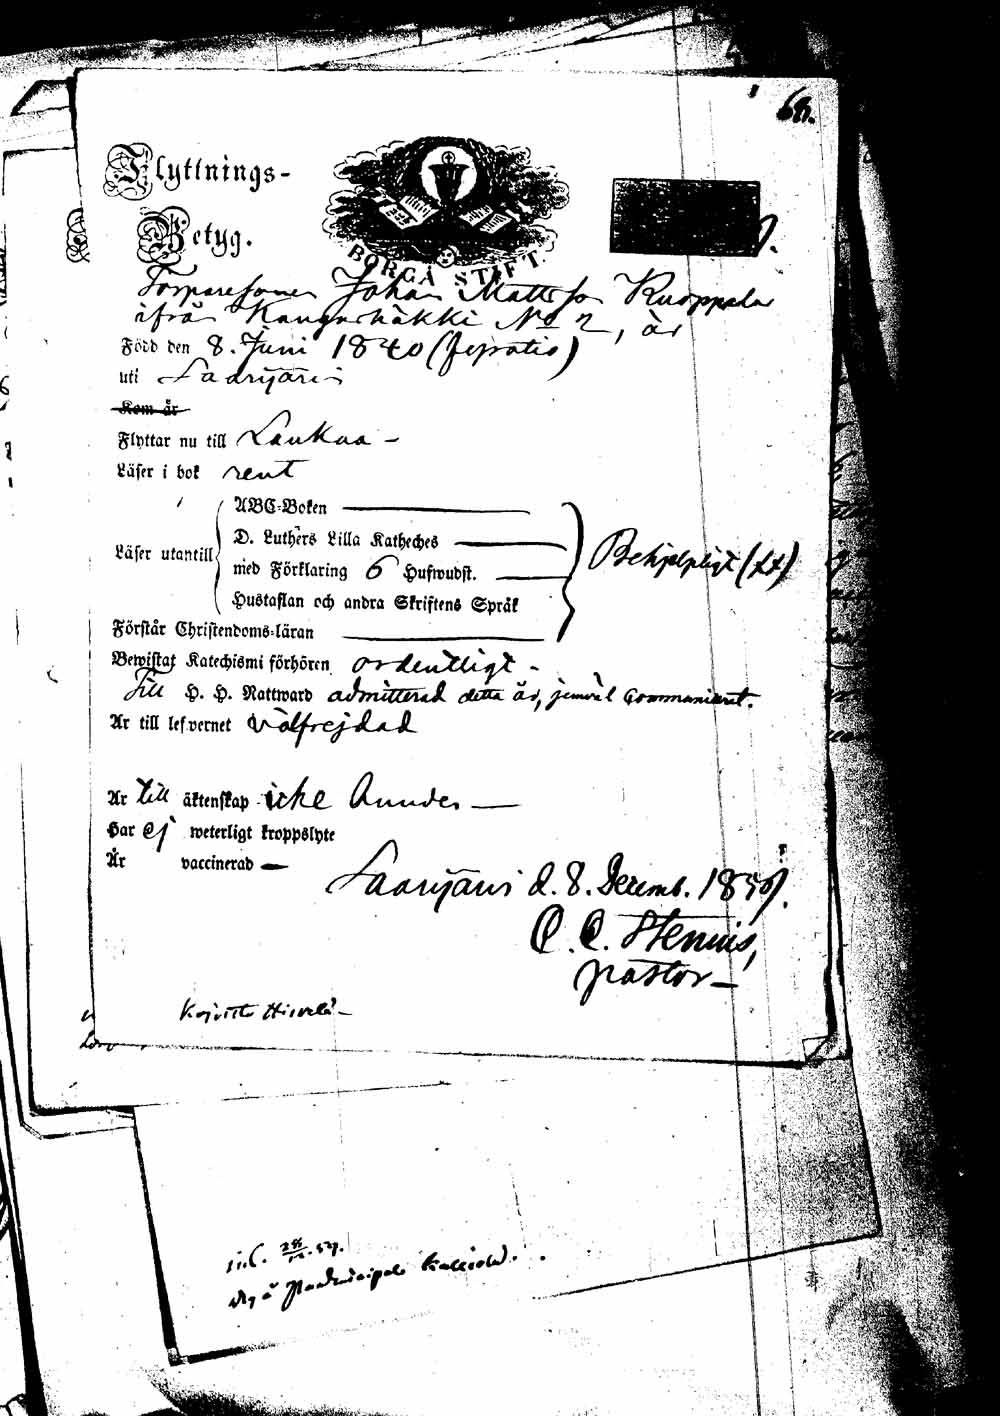 68.
Flyttnings-
Betyg.
BORGÅ STIFT.
Torparesonen Johan Mattsson Kuoppala
ifrån Kangashäkki No 2, är
Född den 8. Juni 1840 (
uti Saarijärvi
Kom år
Flyttar nu till Laukaa -
Läser i bok rent
ABC-Boken
D. Luthers Lilla Katheches
Läser utantill
med Förklaring 6 Hufwudst.
Hustaflan och andra Skriftens Språk
Behjelpligt
Förstår Christendoms-läran
Bewistat Katechismi förhören ordentligt -
Till H. H. Nattward admitterad detta år, jemväl Communicerat.
Är till lefvernet välfrejdad
Är till äktenskap icke
Har ej weterligt kroppslyte
Är vaccinerad -
Saarijärvi d. 8. Decemb.
C. C. Stenius,
pastor -